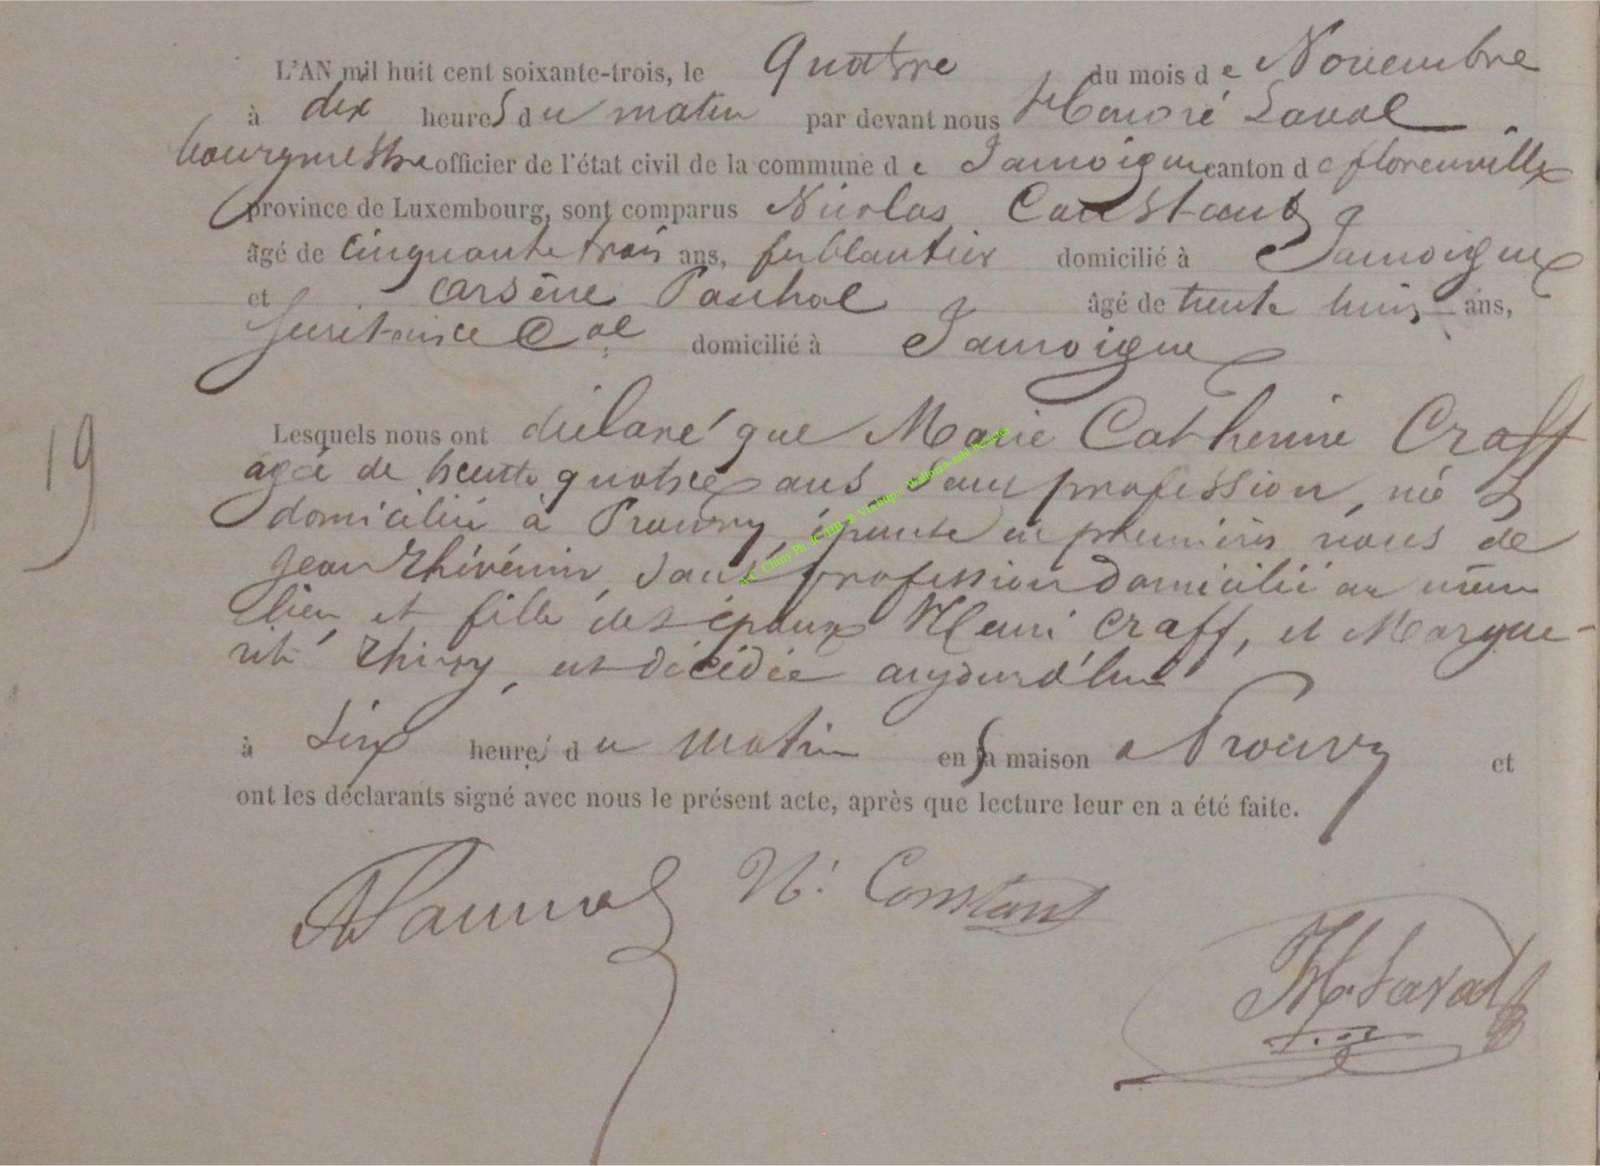 L'AN mil huit cent soixante-trois, le Quatre du mois de Novembre
à dix heures du matin par devant nous Honoré Laval
bourgmestre officier de l'état civil de la commune de Jamoigne canton de florenville
province de Luxembourg, sont comparus Nicolas Constant
âgé de cinquante trois ans, ferblantier domicilié à Jamoigne
et arsène Paschal âgé de trente huit ans,
Secrétaire Cal domicilié à Jamoigne
Lesquels nous ont déclaré que Marie Catherine Craff
19
agée de trente quatre ans sans profession, née &
domicilié à Prouvy, épouse en premières noces de
jean Thivénin, sans profession domicilié au même
lieu et fille des époux Henri Craff, et Margue-
rite Thiry, est décédée aujourd'hui
à six heures du matin en sa maison a Prouvy et
ont les déclarants signé avec nous le présent acte, après que lecture leur en a été faite.
N. Constant
H. Laval